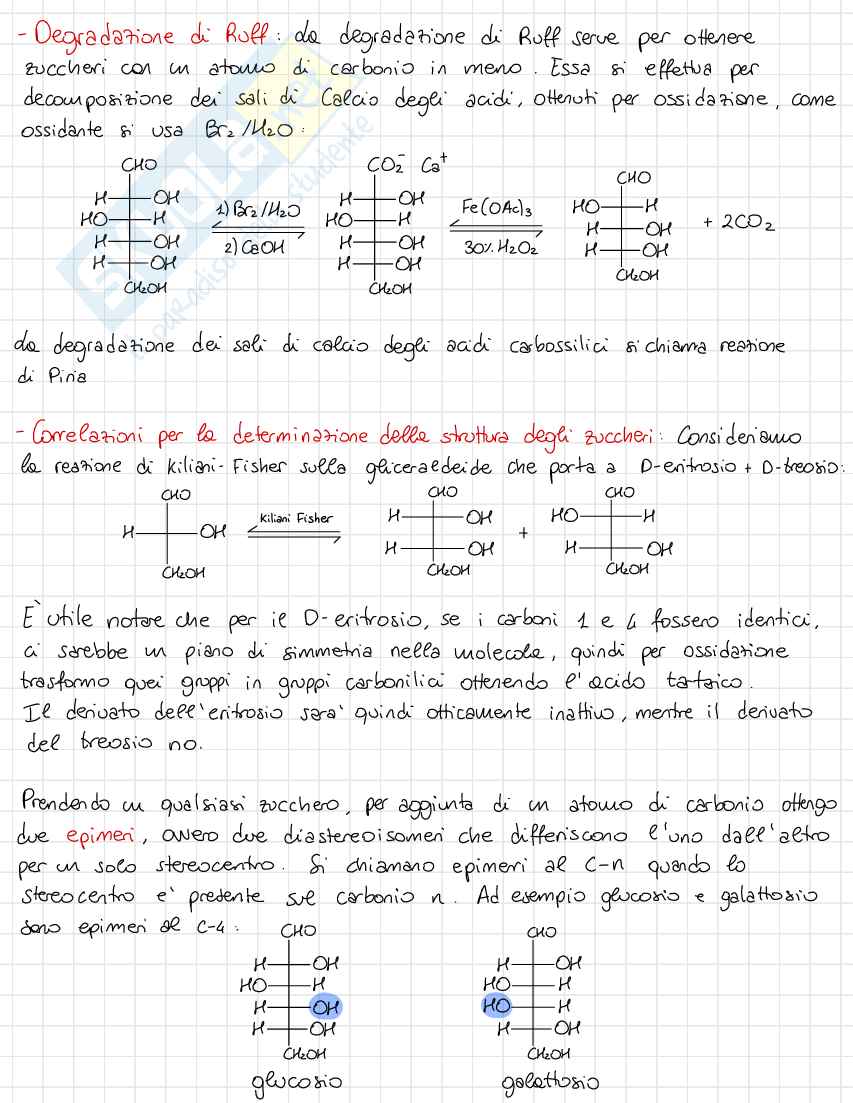 - Degradazione di Ruff: la degradazione di Ruff serve per ottenere
zuccheri con un atomo di carbonio in meno. Essa si effettua per
decomposizione dei sali di Calcio degli acidi, ottenuti per ossidazione, come
ossidante si usa Br₂/H₂O:
CHO CO₂⁻ Ca⁺ CHO
H OH H OH HO H
HO H HO H H OH
H OH H OH H OH
H OH H OH CH₂OH
CH₂OH CH₂OH
1) Br₂/H₂O
2) CaOH
Fe(OAc)₃
30% H₂O₂
+ 2CO₂
la degradazione dei sali di calcio degli acidi carbossilici si chiama reazione
di Piria
- Correlazioni per la determinazione della struttura degli zuccheri: Consideriamo
la reazione di Kiliani-Fisher sulla gliceraedeide che porta a D-eritrosio + D-treosio:
CHO CHO CHO
H OH Kiliani Fisher H OH + HO H
CH₂OH H OH H OH
CH₂OH CH₂OH
E' utile notare che per il D-eritrosio, se i carboni 1 e 4 fossero identici,
ci sarebbe un piano di simmetria nella molecola, quindi per ossidazione
trasformo quei gruppi in gruppi carbonilici ottenendo l'acido tartaico.
Il derivato dell'eritrosio sara' quindi otticamente inattivo, mentre il derivato
del treosio no.
Prendendo un qualsiasi zucchero, per aggiunta di un atomo di carbonio ottengo
due epimeri, ovvero due diastereoisomeri che differiscono l'uno dall'altro
per un solo stereocentro. Si chiamano epimeri al C-n quando lo
stereocentro e' presente sul carbonio n. Ad esempio glucosio e galattosio
sono epimeri al C-4:
CHO CHO
H OH H OH
HO H HO H
H OH HO H
H OH H OH
CH₂OH CH₂OH
glucosio galattosio